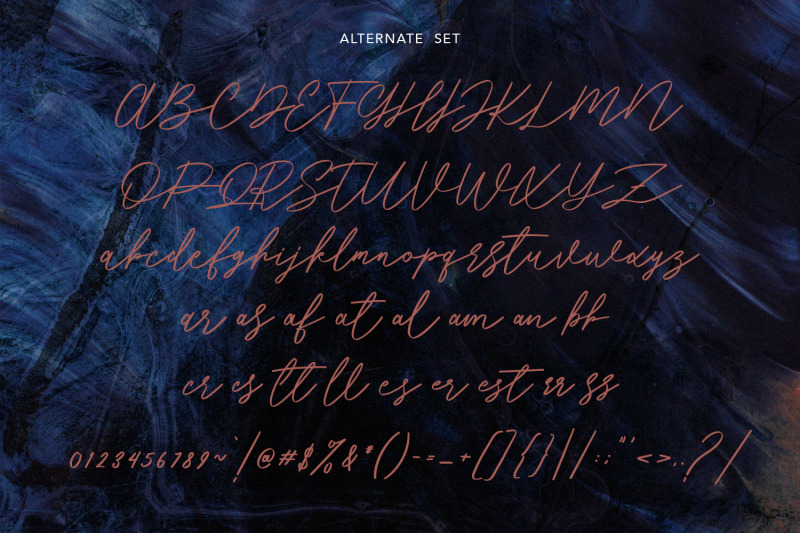 ALTERNATE SET
ABCDEFGHIJKLMN
OPQRSTUVWXYZ
abcdefghijklmnopqrstuvwxyz
ar as af at al am an bb
cr cs tt ll es er est rr ss
0123456789~`!@#$%&*()-=_+[]{}|\:;"'<>,.?/